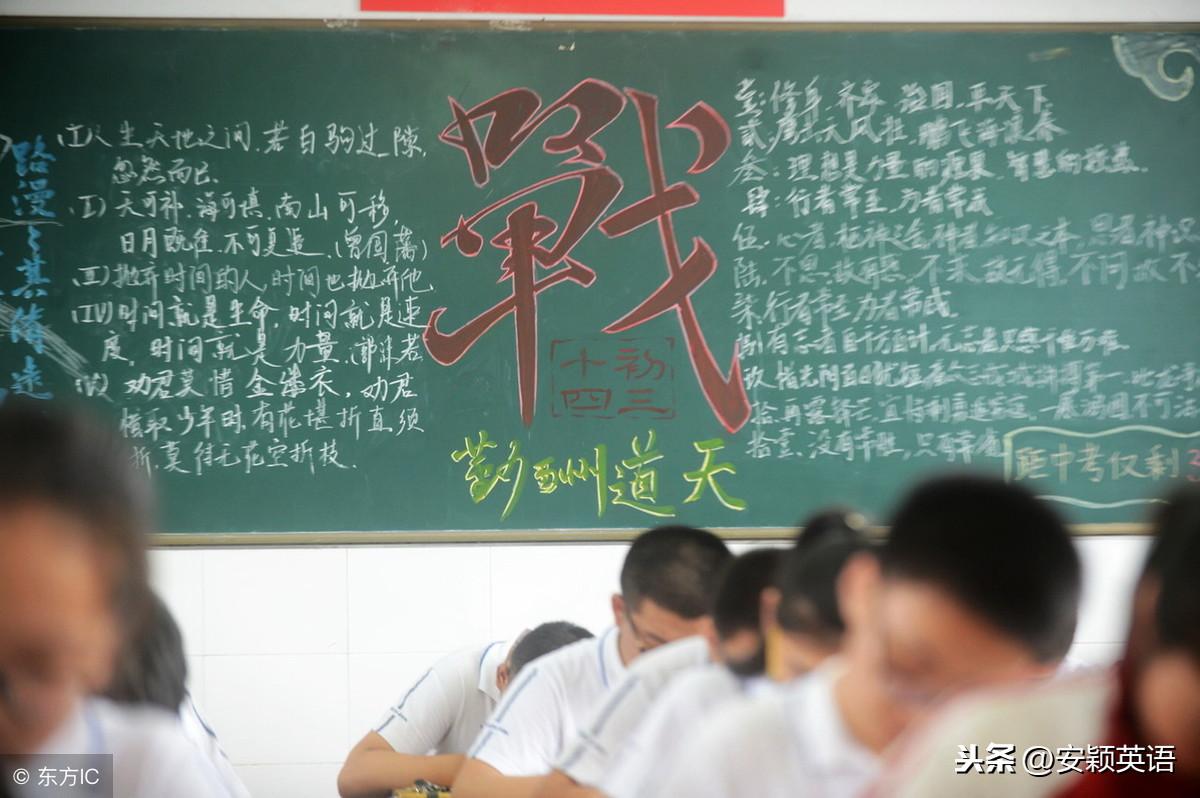 路漫漫其修远
(I)人生天地之间,若白驹过隙,
忽然而已.
(II)天可补,海可填,南山可移,
日月既往,不可复追.(曾国藩)
(III)抛弃时间的人,时间也抛弃他
(IV)时间就是生命,时间就是速
度,时间就是力量.
(V)劝君莫惜金缕衣,劝君
惜取少年时,有花堪折直须
折,莫待无花空折枝.
戰
初三
十四
天道酬勤
壹:修身,齐家,治国,平天下
叁:理想是力量的源泉,智慧的
肆:行者常至,为者常成
伍,心者,
陆,不思,故有惑,不求故无得,不问故不
柒,行者常至为者常成
捌有志者自有千方百计无志者只感千难万难
拾壹,没有
距中考仅剩3
© 东方IC
头条 @安颖英语